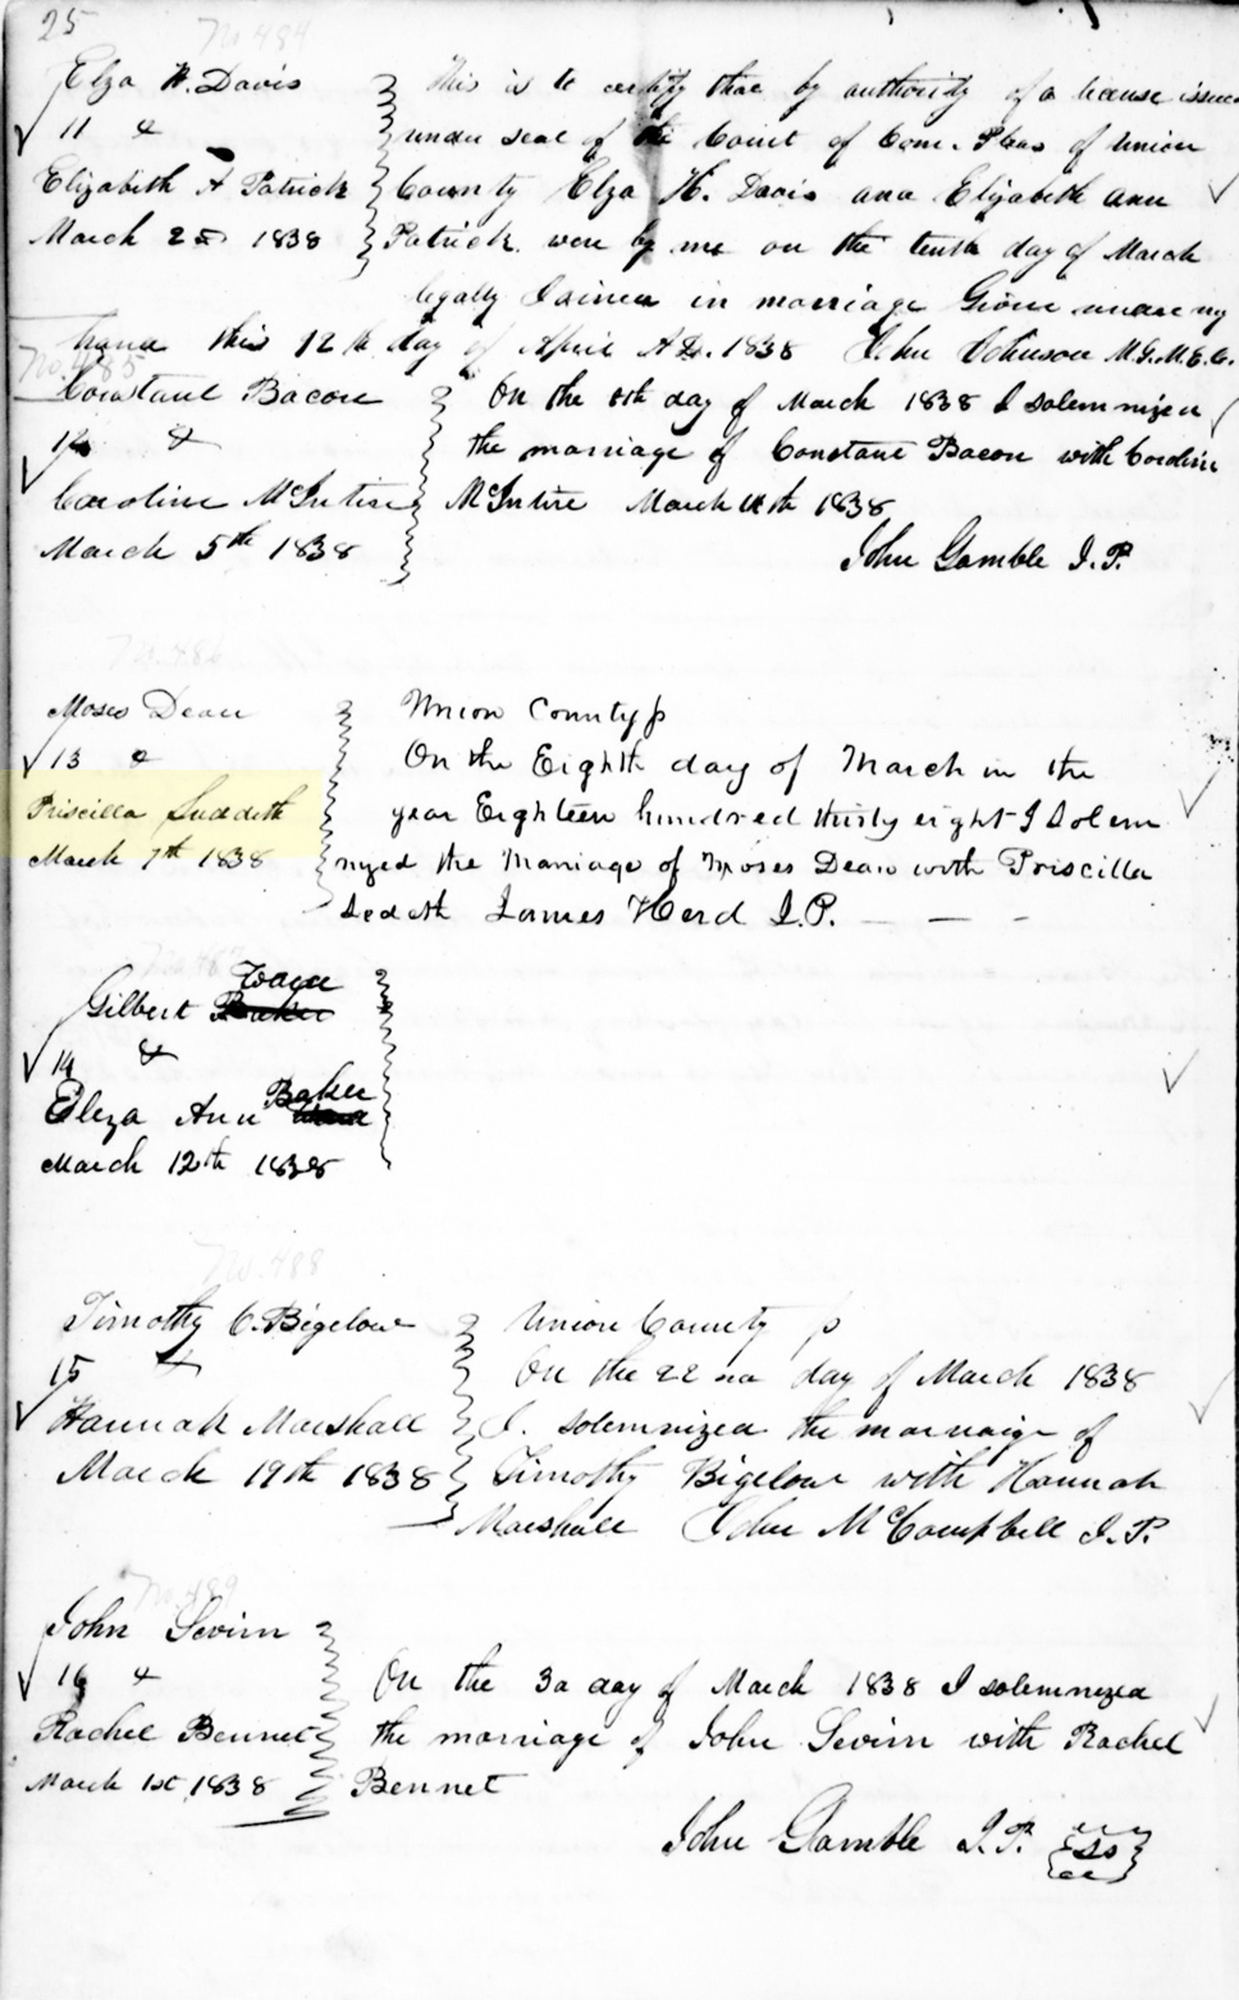 25
No 484
Elza H. Davis
11 &
Elizabeth A Patrick
March 2 1838
This is to certify that by authority of a license issued
under seal of the Court of Com. Pleas of Union
County Elza H. Davis and Elizabeth Ann
Patrick were by me on the tenth day of March
legally Joined in marriage Given under my
hand this 12th day of April A D. 1838 John Johnson M.G.M.E.C.
No. 485
Constant Bacon
12 &
Caroline McIntire
March 5th 1838
On the 8th day of March 1838 I solemnized
the marriage of Constant Bacon with Caroline
McIntire March 1838
John Gamble J.P.
No. 486
Moses Dean
13 &
Priscilla Suddeth
March 7th 1838
Union County ss
On the Eighth day of March in the
year Eighteen hundred thirty eight I Solem
nyed the Marriage of Moses Dean with Priscilla
Sedeth James Herd J.P. — — -
No. 487
Ware
Gilbert Baker
14 &
Baker
Eliza Ann
March 12th 1838
No. 488
Timothy C. Bigelow
15 &
Hannah Marshall
March 19th 1838
Union County ss
On the 22nd day of March 1838
I. solemnized the marriage of
Timothy Bigelow with Hannah
Marshall John McCampbell J.P.
No. 489
John Sevirn
16 &
Rachel Bennet
March 1st 1838
On the 3d day of March 1838 I solemnized
the marriage of John Sevirn with Rachel
Bennet
John Gamble J.P.